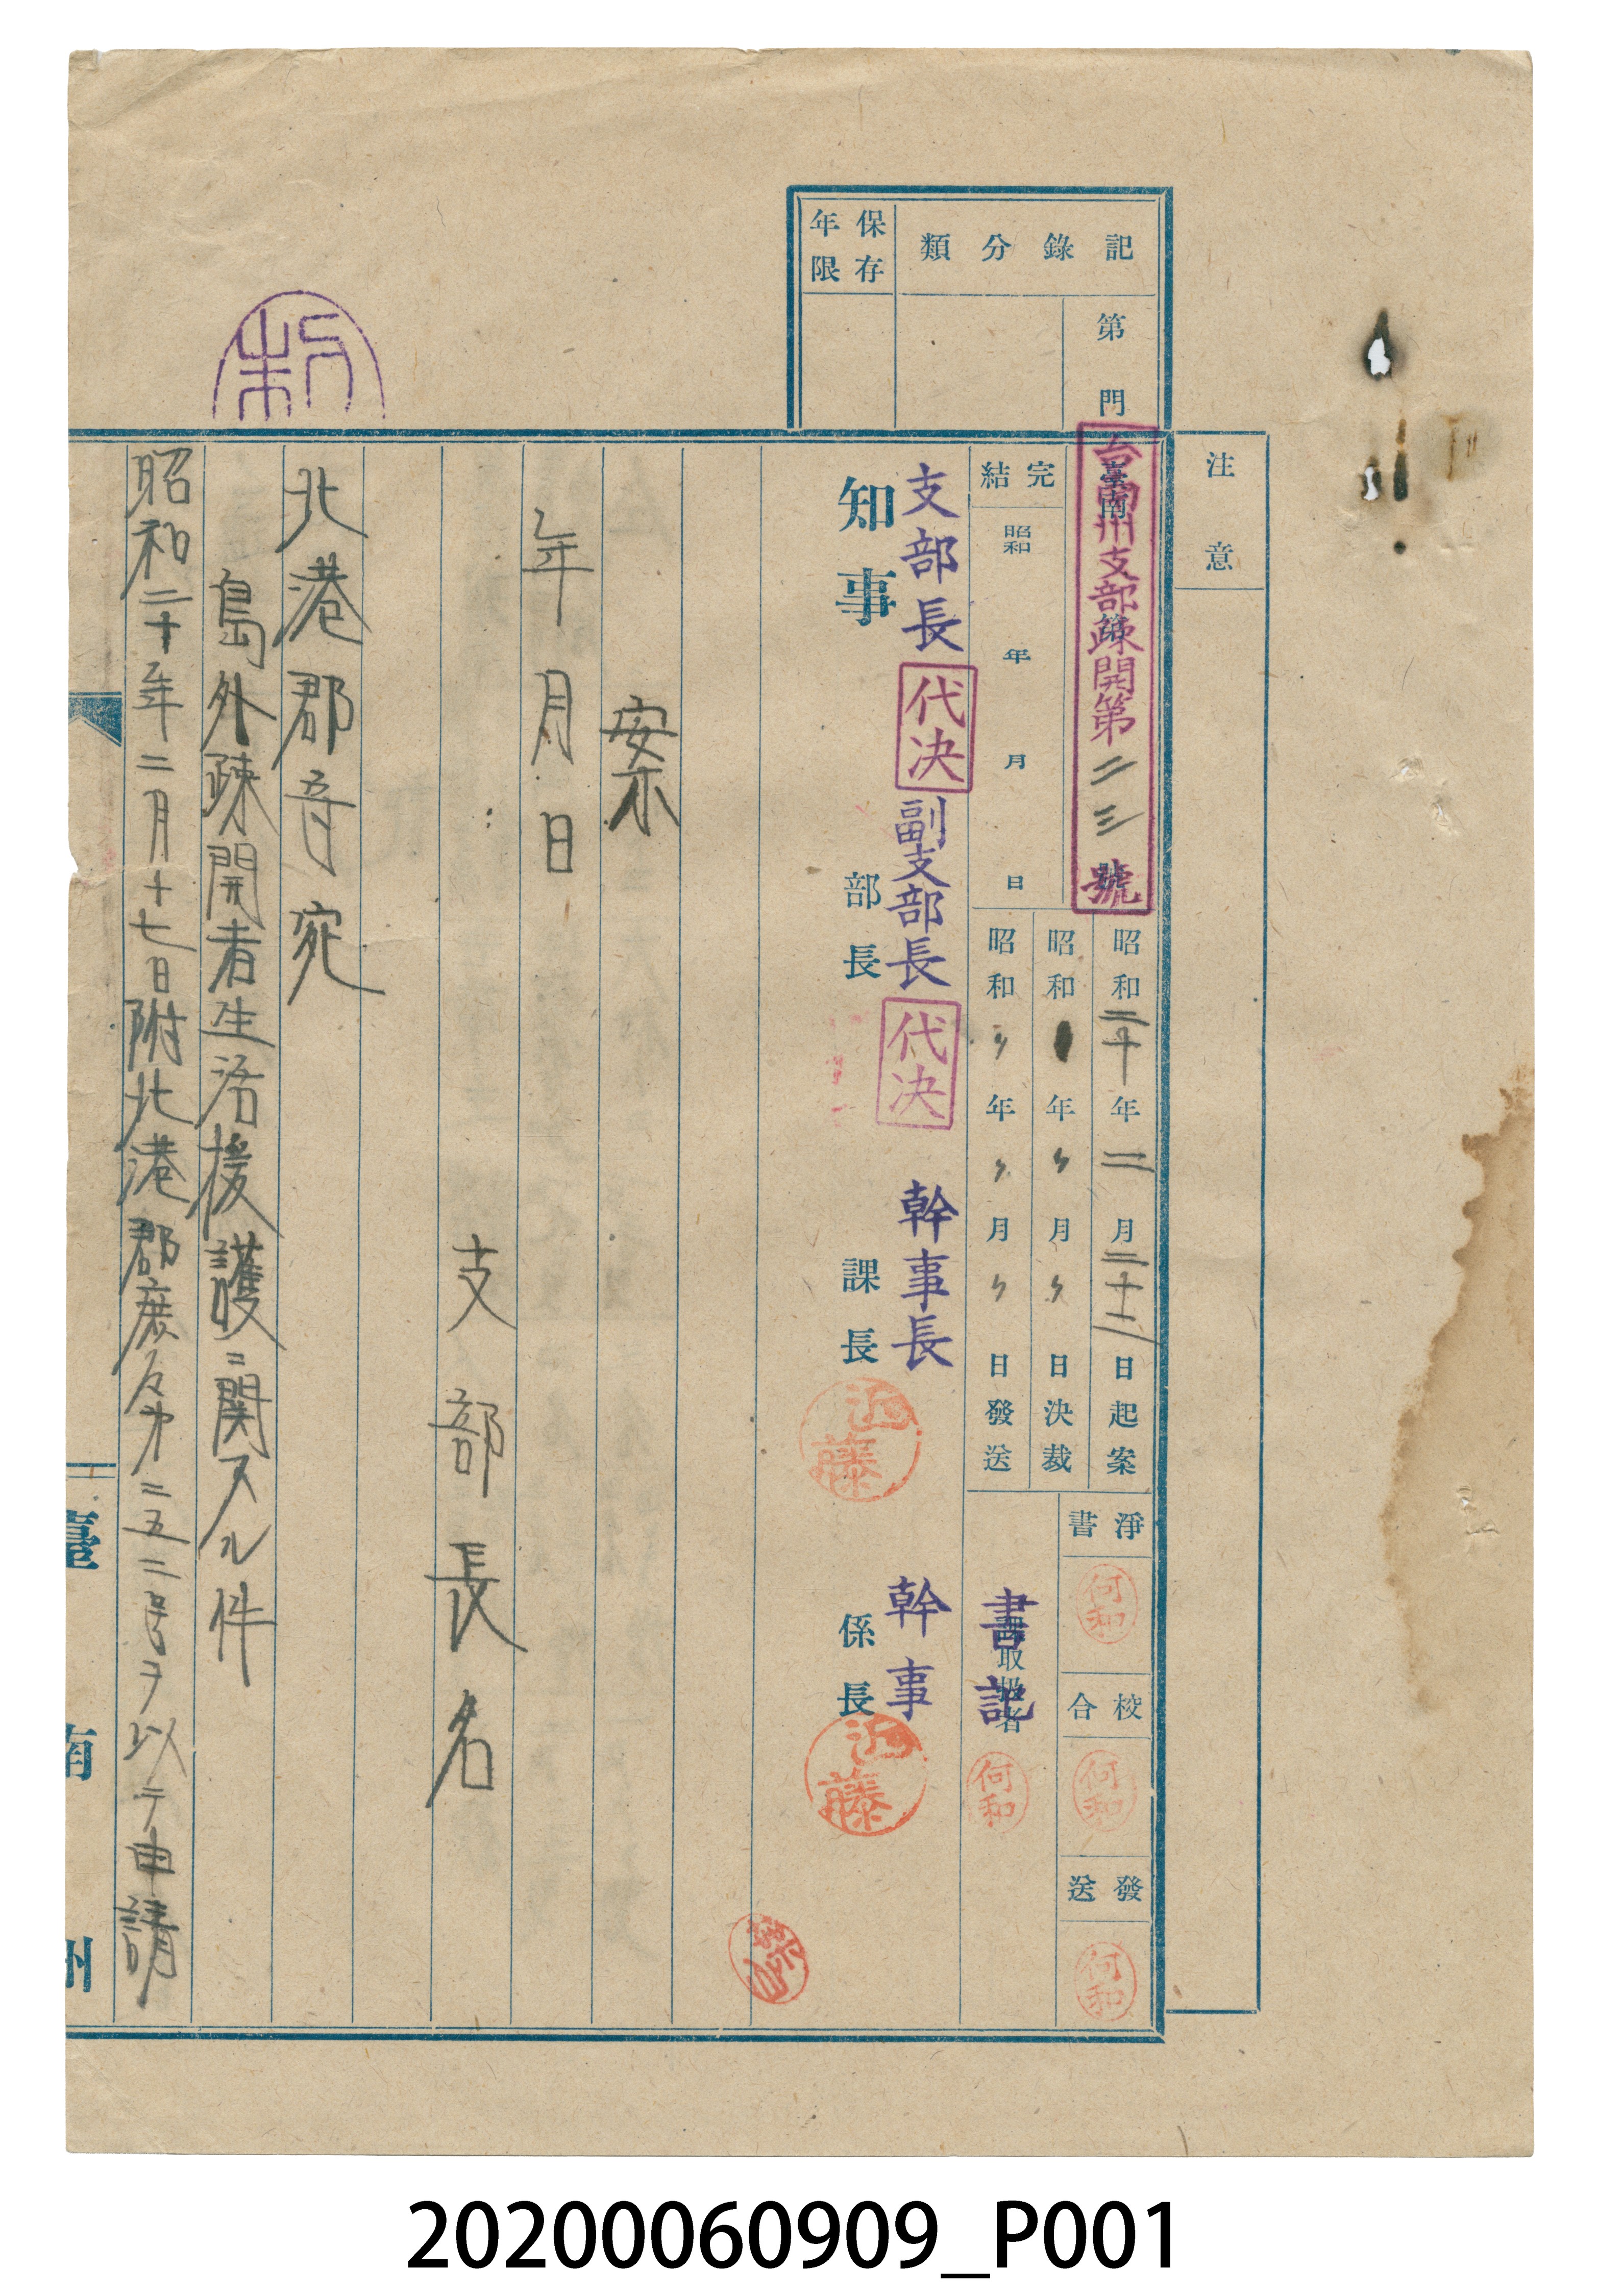 注意
記錄分類
第 門
保存年限
臺南 第 號
台南州支部疎開第二三號
完結 昭和 年 月 日
昭和二十年二月二十二日起案
昭和 年〃月〃日決裁
昭和〃年〃月〃日發送
淨書 何和
校合 何和
發送 何和
取扱者
書記 何和
支部長 代決 副支部長 代決 幹事長 幹事
知事 部長 課長 近藤 係長 近藤
案
年月日
支部長名
北港郡守宛
島外疎開者生活援護ニ関スル件
昭和二十年二月十七日附北港郡庶 第二五二号ヲ以テ申請
臺南州
20200060909_P001